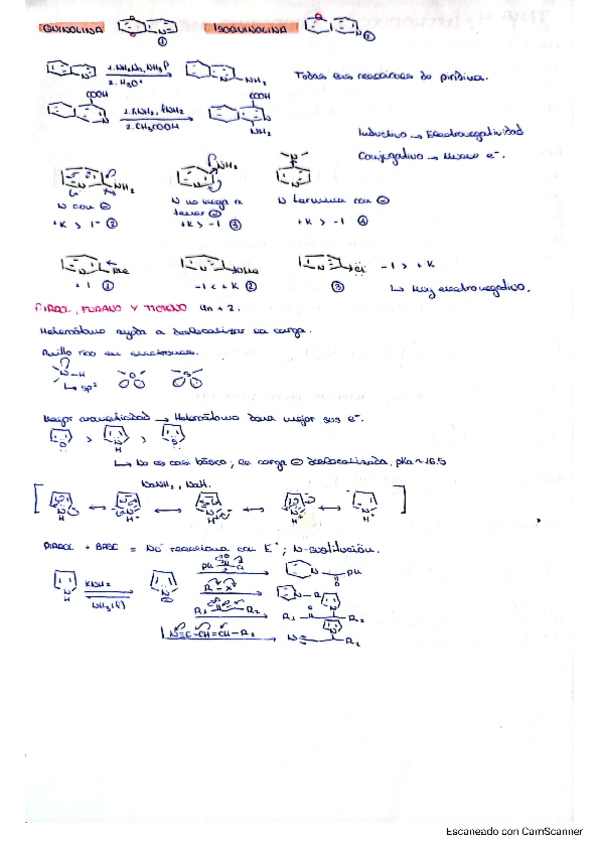 QUINOLINA ① ISOQUINOLINA ②
1. NH₂Na, NH₃ P
2. H₃O⁺
NH₂
Todas sus reacciones de piridina.
COOH
1. KNH₂, NH₃
2. CH₃COOH
COOH
NH₂
Inductivo → Electronegatividad
Conjugativo → Mueve e⁻.
NH₂ NH₂ N
N con ⊖
N no llega a tener ⊖
N termina con ⊖
+K > I⁻ ②
+K > -I ③
+K > -I ①
Me OMe Cl -I > +K
+I ① -I < +K ② ③ ↳ Muy electronegativo.
PIRROL, FURANO Y TIOFENO 4n + 2.
Heteroátomo ayuda a deslocalizar la carga.
Anillo rico en electrones.
N-H O S
↳ sp²
Mayor aromaticidad → Heteroátomo dona mejor sus e⁻.
O > N H > S
↳ No es casi básico; la carga ⊖ deslocalizada. pKa ≈ 16.5
NaNH₂, NaH.
PIRROL + BASE = No reacciona con E⁺; N-sustitución.
KNH₂
NH₃(l)
R-X
N≡C-CH=CH-R₂
Escaneado con CamScanner